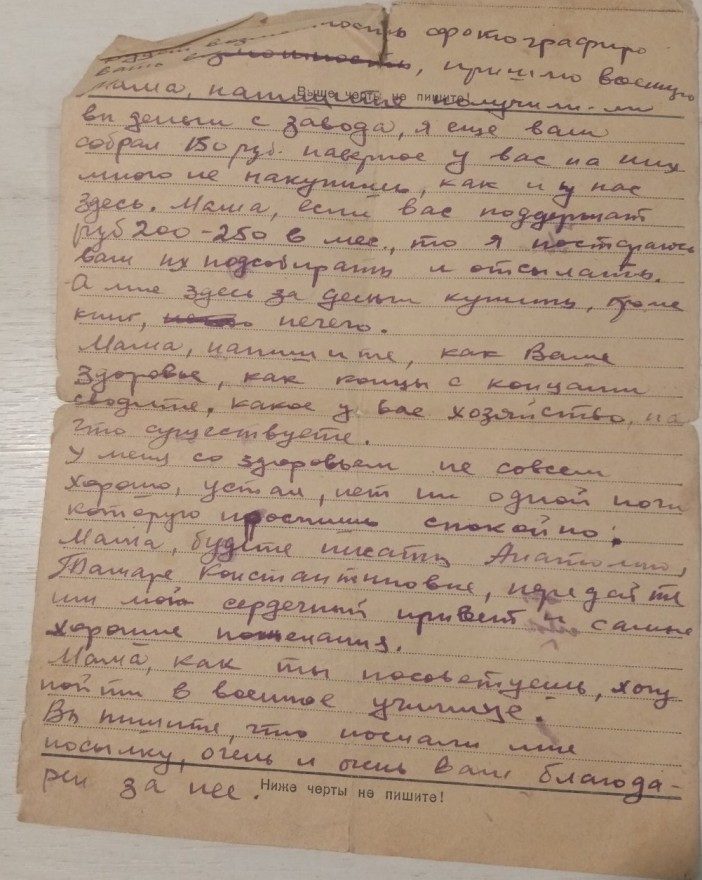 возможность сфотографиро
возможность, пришлю военную
Выше черты не пишите!
Мама, напишите получили-ли
вы деньги с завода, я еще вам
собрал 150 руб. наверное у вас на них
много не накупишь, как и у нас
здесь. Мама, если вас поддержат
руб 200-250 в мес., то я постараюсь
вам их подсобирать и отсылать.
А мне здесь за деньги купить, кроме
книг, нечего.
Мама, напишите, как Ваше
здоровье, как концы с концами
сводите, какое у вас хозяйство, на
что существуете.
У меня со здоровьем не совсем
хорошо, устал, нет ни одной ночи
которую проспишь спокойно.
Мама, будете писать Анатолию,
Тамаре Константиновне, передайте
им мой сердечный привет и самые
хорошие пожелания.
Мама, как ты посоветуешь, хочу
пойти в военное училище.
Вы пишите, что послали мне
посылку, очень и очень Вам благода-
рен за нее.
Ниже черты не пишите!